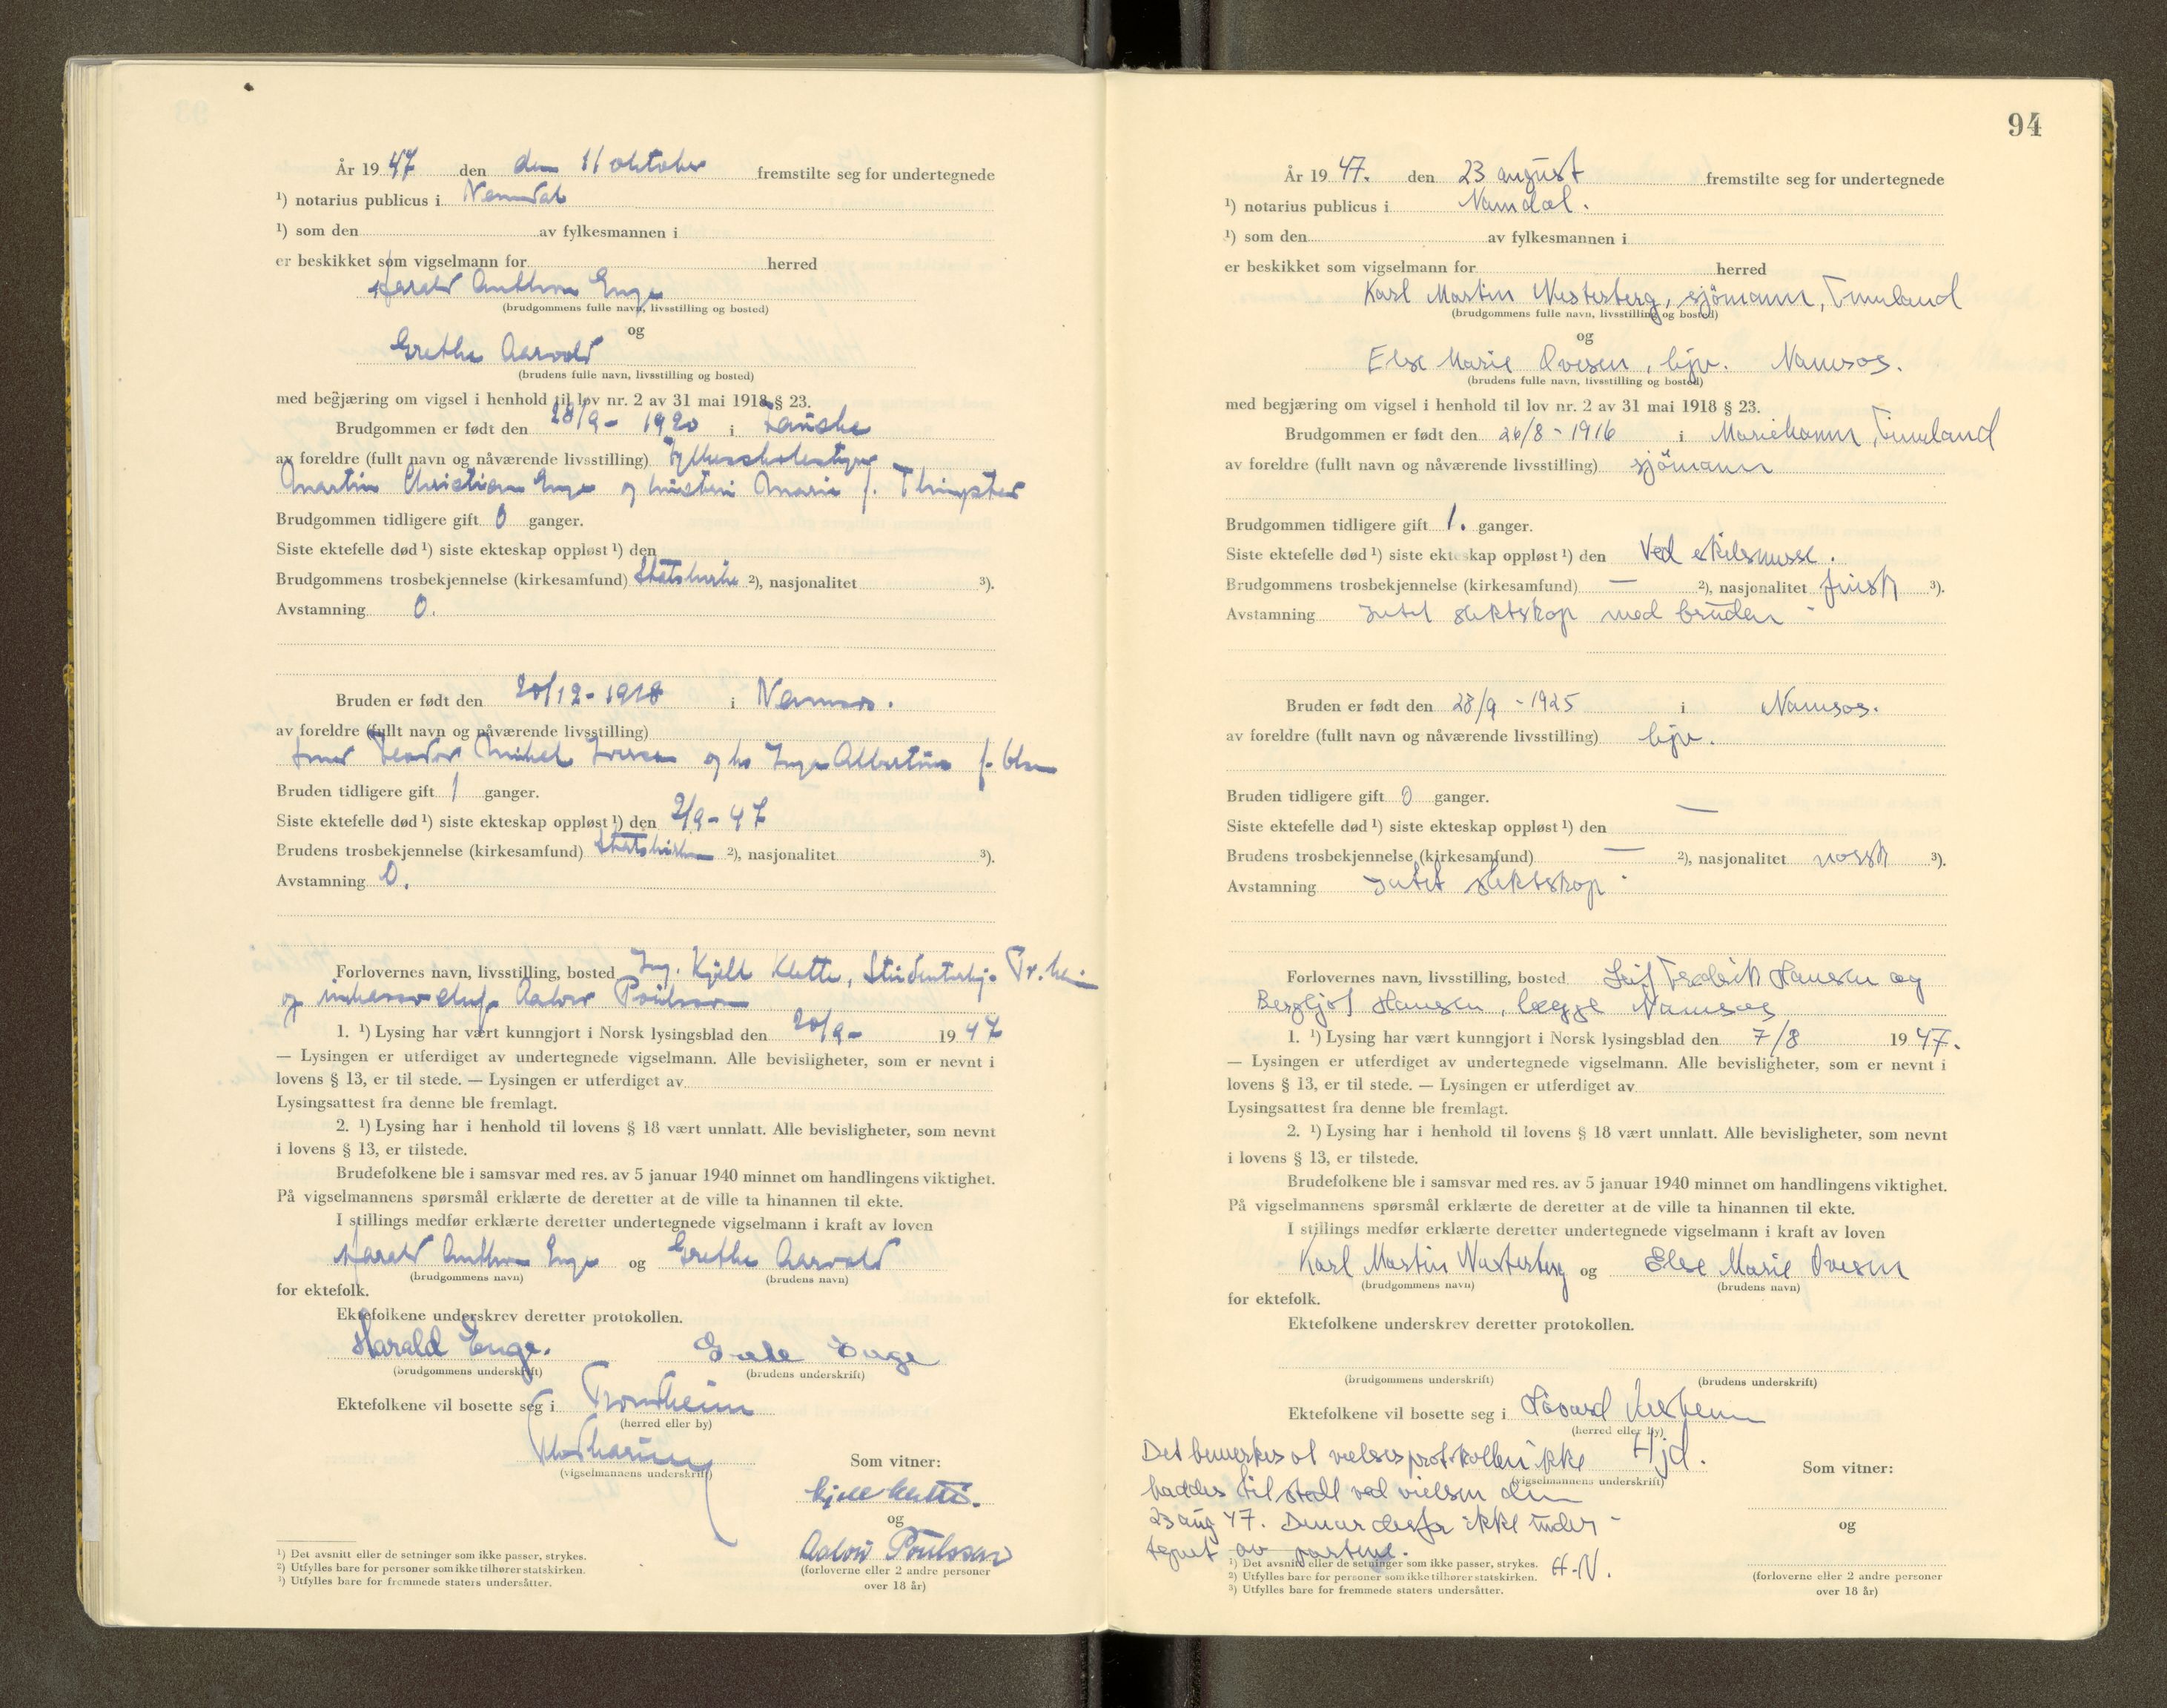 År 19 47 den den 11 oktober fremstilte seg for undertegnede
¹) notarius publicus i Namdal
¹) som den av fylkesmannen i
er beskikket som vigselmann for herred
Harald Anthon Enge
(brudgommens fulle navn, livsstilling og bosted)
og
Grethe Aarvold
(brudens fulle navn, livsstilling og bosted)
med begjæring om vigsel i henhold til lov nr. 2 av 31 mai 1918 § 23.
Brudgommen er født den 28/9 - 1920 i
av foreldre (fullt navn og nåværende livsstilling)
Martin Christian Enge og hustru Marie f.
Brudgommen tidligere gift 0 ganger.
Siste ektefelle død ¹) siste ekteskap oppløst ¹) den
Brudgommens trosbekjennelse (kirkesamfund) Statskirke ²), nasjonalitet ³).
Avstamning 0.
Bruden er født den 20/12 - 1918 i Namsos.
av foreldre (fullt navn og nåværende livsstilling)
Teodor Mikal og hu Inga Albertine f.
Bruden tidligere gift 1 ganger.
Siste ektefelle død ¹) siste ekteskap oppløst ¹) den 2/9 - 47
Brudens trosbekjennelse (kirkesamfund) Statskirken ²), nasjonalitet ³).
Avstamning 0.
Forlovernes navn, livsstilling, bosted Ing. Kjell Klette,
og Poulsson
1. ¹) Lysing har vært kunngjort i Norsk lysingsblad den 20/9 - 19 47
— Lysingen er utferdiget av undertegnede vigselmann. Alle bevisligheter, som er nevnt i
lovens § 13, er til stede. — Lysingen er utferdiget av
Lysingsattest fra denne ble fremlagt.
2. ¹) Lysing har i henhold til lovens § 18 vært unnlatt. Alle bevisligheter, som nevnt
i lovens § 13, er tilstede.
Brudefolkene ble i samsvar med res. av 5 januar 1940 minnet om handlingens viktighet.
På vigselmannens spørsmål erklærte de deretter at de ville ta hinannen til ekte.
I stillings medfør erklærte deretter undertegnede vigselmann i kraft av loven
Harald Anthon Enge og Grethe Aarvold
(brudgommens navn) (brudens navn)
for ektefolk.
Ektefolkene underskrev deretter protokollen.
Harald Enge. Enge
(brudgommens underskrift) (brudens underskrift)
Ektefolkene vil bosette seg i Trondheim
(herred eller by)
(vigselmannens underskrift)
Som vitner:
Kjell Klette.
og
Poulsson
(forloverne eller 2 andre personer
over 18 år)
¹) Det avsnitt eller de setninger som ikke passer, strykes.
²) Utfylles bare for personer som ikke tilhører statskirken.
³) Utfylles bare for fremmede staters undersåtter.
94
År 19 47. den 23 august fremstilte seg for undertegnede
¹) notarius publicus i Namdal.
¹) som den av fylkesmannen i
er beskikket som vigselmann for herred
Karl Martin Westerberg, sjömann, Finnland
(brudgommens fulle navn, livsstilling og bosted)
og
Else Marie Ovesen, hjv. Namsos.
(brudens fulle navn, livsstilling og bosted)
med begjæring om vigsel i henhold til lov nr. 2 av 31 mai 1918 § 23.
Brudgommen er født den 26/8 - 1916 i Mariehamn, Finnland
av foreldre (fullt navn og nåværende livsstilling) sjömann
Brudgommen tidligere gift 1. ganger.
Siste ektefelle død ¹) siste ekteskap oppløst ¹) den Ved skilsmisse.
Brudgommens trosbekjennelse (kirkesamfund) — ²), nasjonalitet finsk ³).
Avstamning Intet slektskap med bruden -
Bruden er født den 28/9 - 1925 i Namsos.
av foreldre (fullt navn og nåværende livsstilling) hjv.
Bruden tidligere gift 0 ganger.
Siste ektefelle død ¹) siste ekteskap oppløst ¹) den —
Brudens trosbekjennelse (kirkesamfund) — ²), nasjonalitet norsk ³).
Avstamning Intet slektskap -
Forlovernes navn, livsstilling, bosted Leif Fredrik Hansen og
Bergljot Hansen, begge Namsos
1. ¹) Lysing har vært kunngjort i Norsk lysingsblad den 7/8 19 47.
— Lysingen er utferdiget av undertegnede vigselmann. Alle bevisligheter, som er nevnt i
lovens § 13, er til stede. — Lysingen er utferdiget av
Lysingsattest fra denne ble fremlagt.
2. ¹) Lysing har i henhold til lovens § 18 vært unnlatt. Alle bevisligheter, som nevnt
i lovens § 13, er tilstede.
Brudefolkene ble i samsvar med res. av 5 januar 1940 minnet om handlingens viktighet.
På vigselmannens spørsmål erklærte de deretter at de ville ta hinannen til ekte.
I stillings medfør erklærte deretter undertegnede vigselmann i kraft av loven
Karl Martin Westerberg og Else Marie Ovesen
(brudgommens navn) (brudens navn)
for ektefolk.
Ektefolkene underskrev deretter protokollen.
(brudgommens underskrift) (brudens underskrift)
Ektefolkene vil bosette seg i Håvard
(herred eller by)
Det bemerkes at vielsesprotokollen ikke
(vigselmannens underskrift)
haddes til stede ved vielsen den
23 aug 47. Den er derfor ikke under-
tegnet av partene.
H.N.
Som vitner:
og
(forloverne eller 2 andre personer
over 18 år)
¹) Det avsnitt eller de setninger som ikke passer, strykes.
²) Utfylles bare for personer som ikke tilhører statskirken.
³) Utfylles bare for fremmede staters undersåtter.